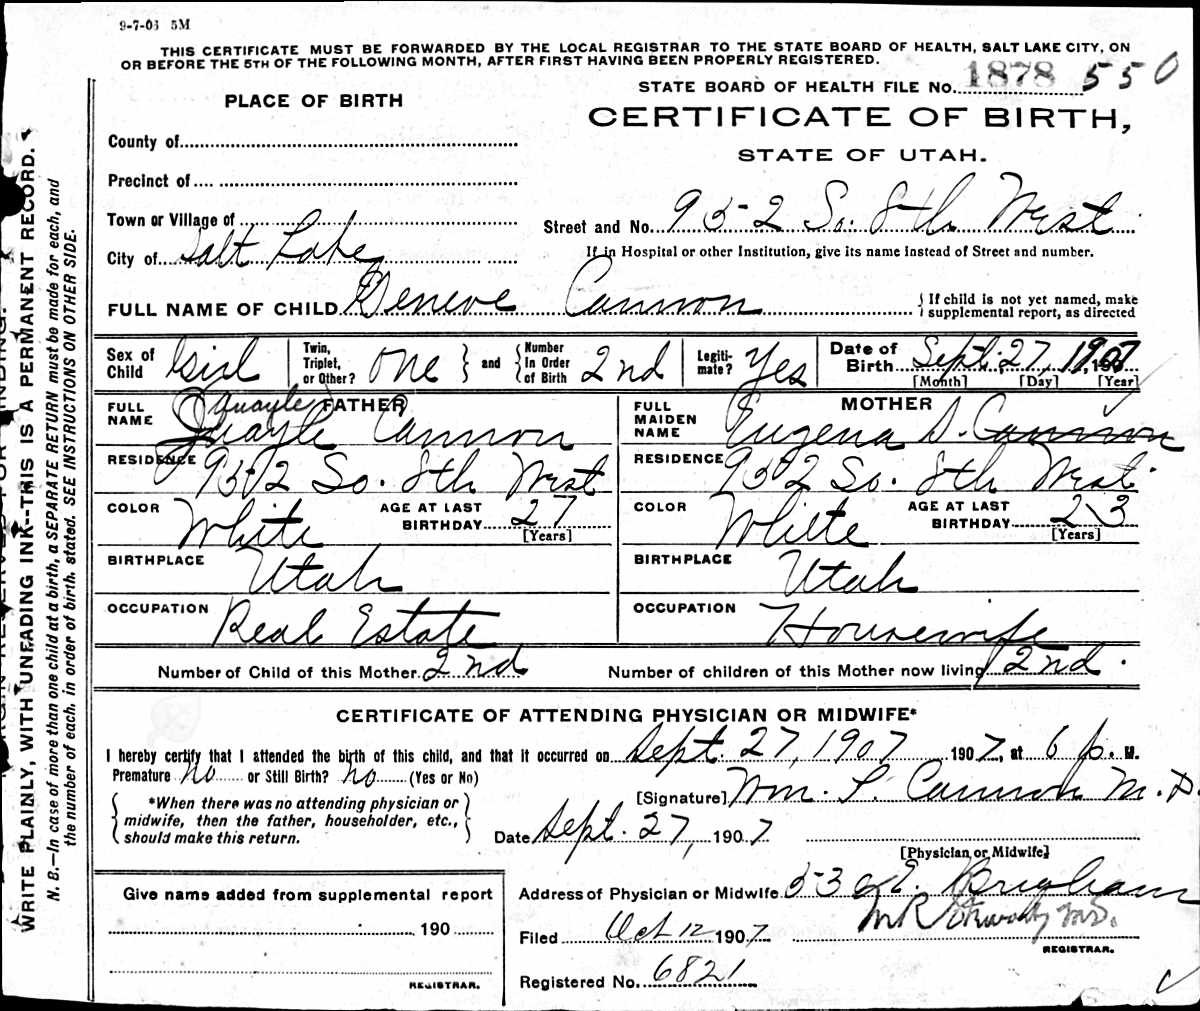 9-7-06 5M
THIS CERTIFICATE MUST BE FORWARDED BY THE LOCAL REGISTRAR TO THE STATE BOARD OF HEALTH, SALT LAKE CITY, ON
OR BEFORE THE 5TH OF THE FOLLOWING MONTH, AFTER FIRST HAVING BEEN PROPERLY REGISTERED.
STATE BOARD OF HEALTH FILE No. 1878 550
PLACE OF BIRTH
CERTIFICATE OF BIRTH,
STATE OF UTAH.
County of
Precinct of
Town or Village of
City of Salt Lake
Street and No. 952 So. 8th West
If in Hospital or other Institution, give its name instead of Street and number.
FULL NAME OF CHILD Geneve Cannon
{ If child is not yet named, make
supplemental report, as directed
Sex of Child Girl
Twin, Triplet, or Other? One } and { Number In Order of Birth 2nd
Legiti-mate? Yes
Date of Birth Sept. 27, 1907
[Month] [Day] [Year]
FATHER
FULL NAME Quayle Quayle Cannon
RESIDENCE 952 So. 8th West
COLOR White
AGE AT LAST BIRTHDAY 27
[Years]
BIRTHPLACE Utah
OCCUPATION Real Estate
MOTHER
FULL MAIDEN NAME Eugena D. Cannon
RESIDENCE 952 So. 8th West
COLOR White
AGE AT LAST BIRTHDAY 23
[Years]
BIRTHPLACE Utah
OCCUPATION Housewife
Number of Child of this Mother 2nd
Number of children of this Mother now living 2nd.
CERTIFICATE OF ATTENDING PHYSICIAN OR MIDWIFE*
I hereby certify that I attended the birth of this child, and that it occurred on Sept. 27, 1907 1907, at 6 p. M.
Premature No or Still Birth? No (Yes or No)
{ *When there was no attending physician or
midwife, then the father, householder, etc.,
should make this return. }
[Signature] Wm. T. Cannon M.D.
Date Sept. 27, 1907
[Physician or Midwife]
Address of Physician or Midwife 53 E. Brigham
Give name added from supplemental report
190
REGISTRAR.
Filed Oct 12 1907
M.D.
REGISTRAR.
Registered No. 6821
WRITE PLAINLY, WITH UNFADING INK--THIS IS A PERMANENT RECORD.
N. B.—In case of more than one child at a birth, a SEPARATE RETURN must be made for each, and
the number of each, in order of birth, stated. SEE INSTRUCTIONS ON OTHER SIDE.